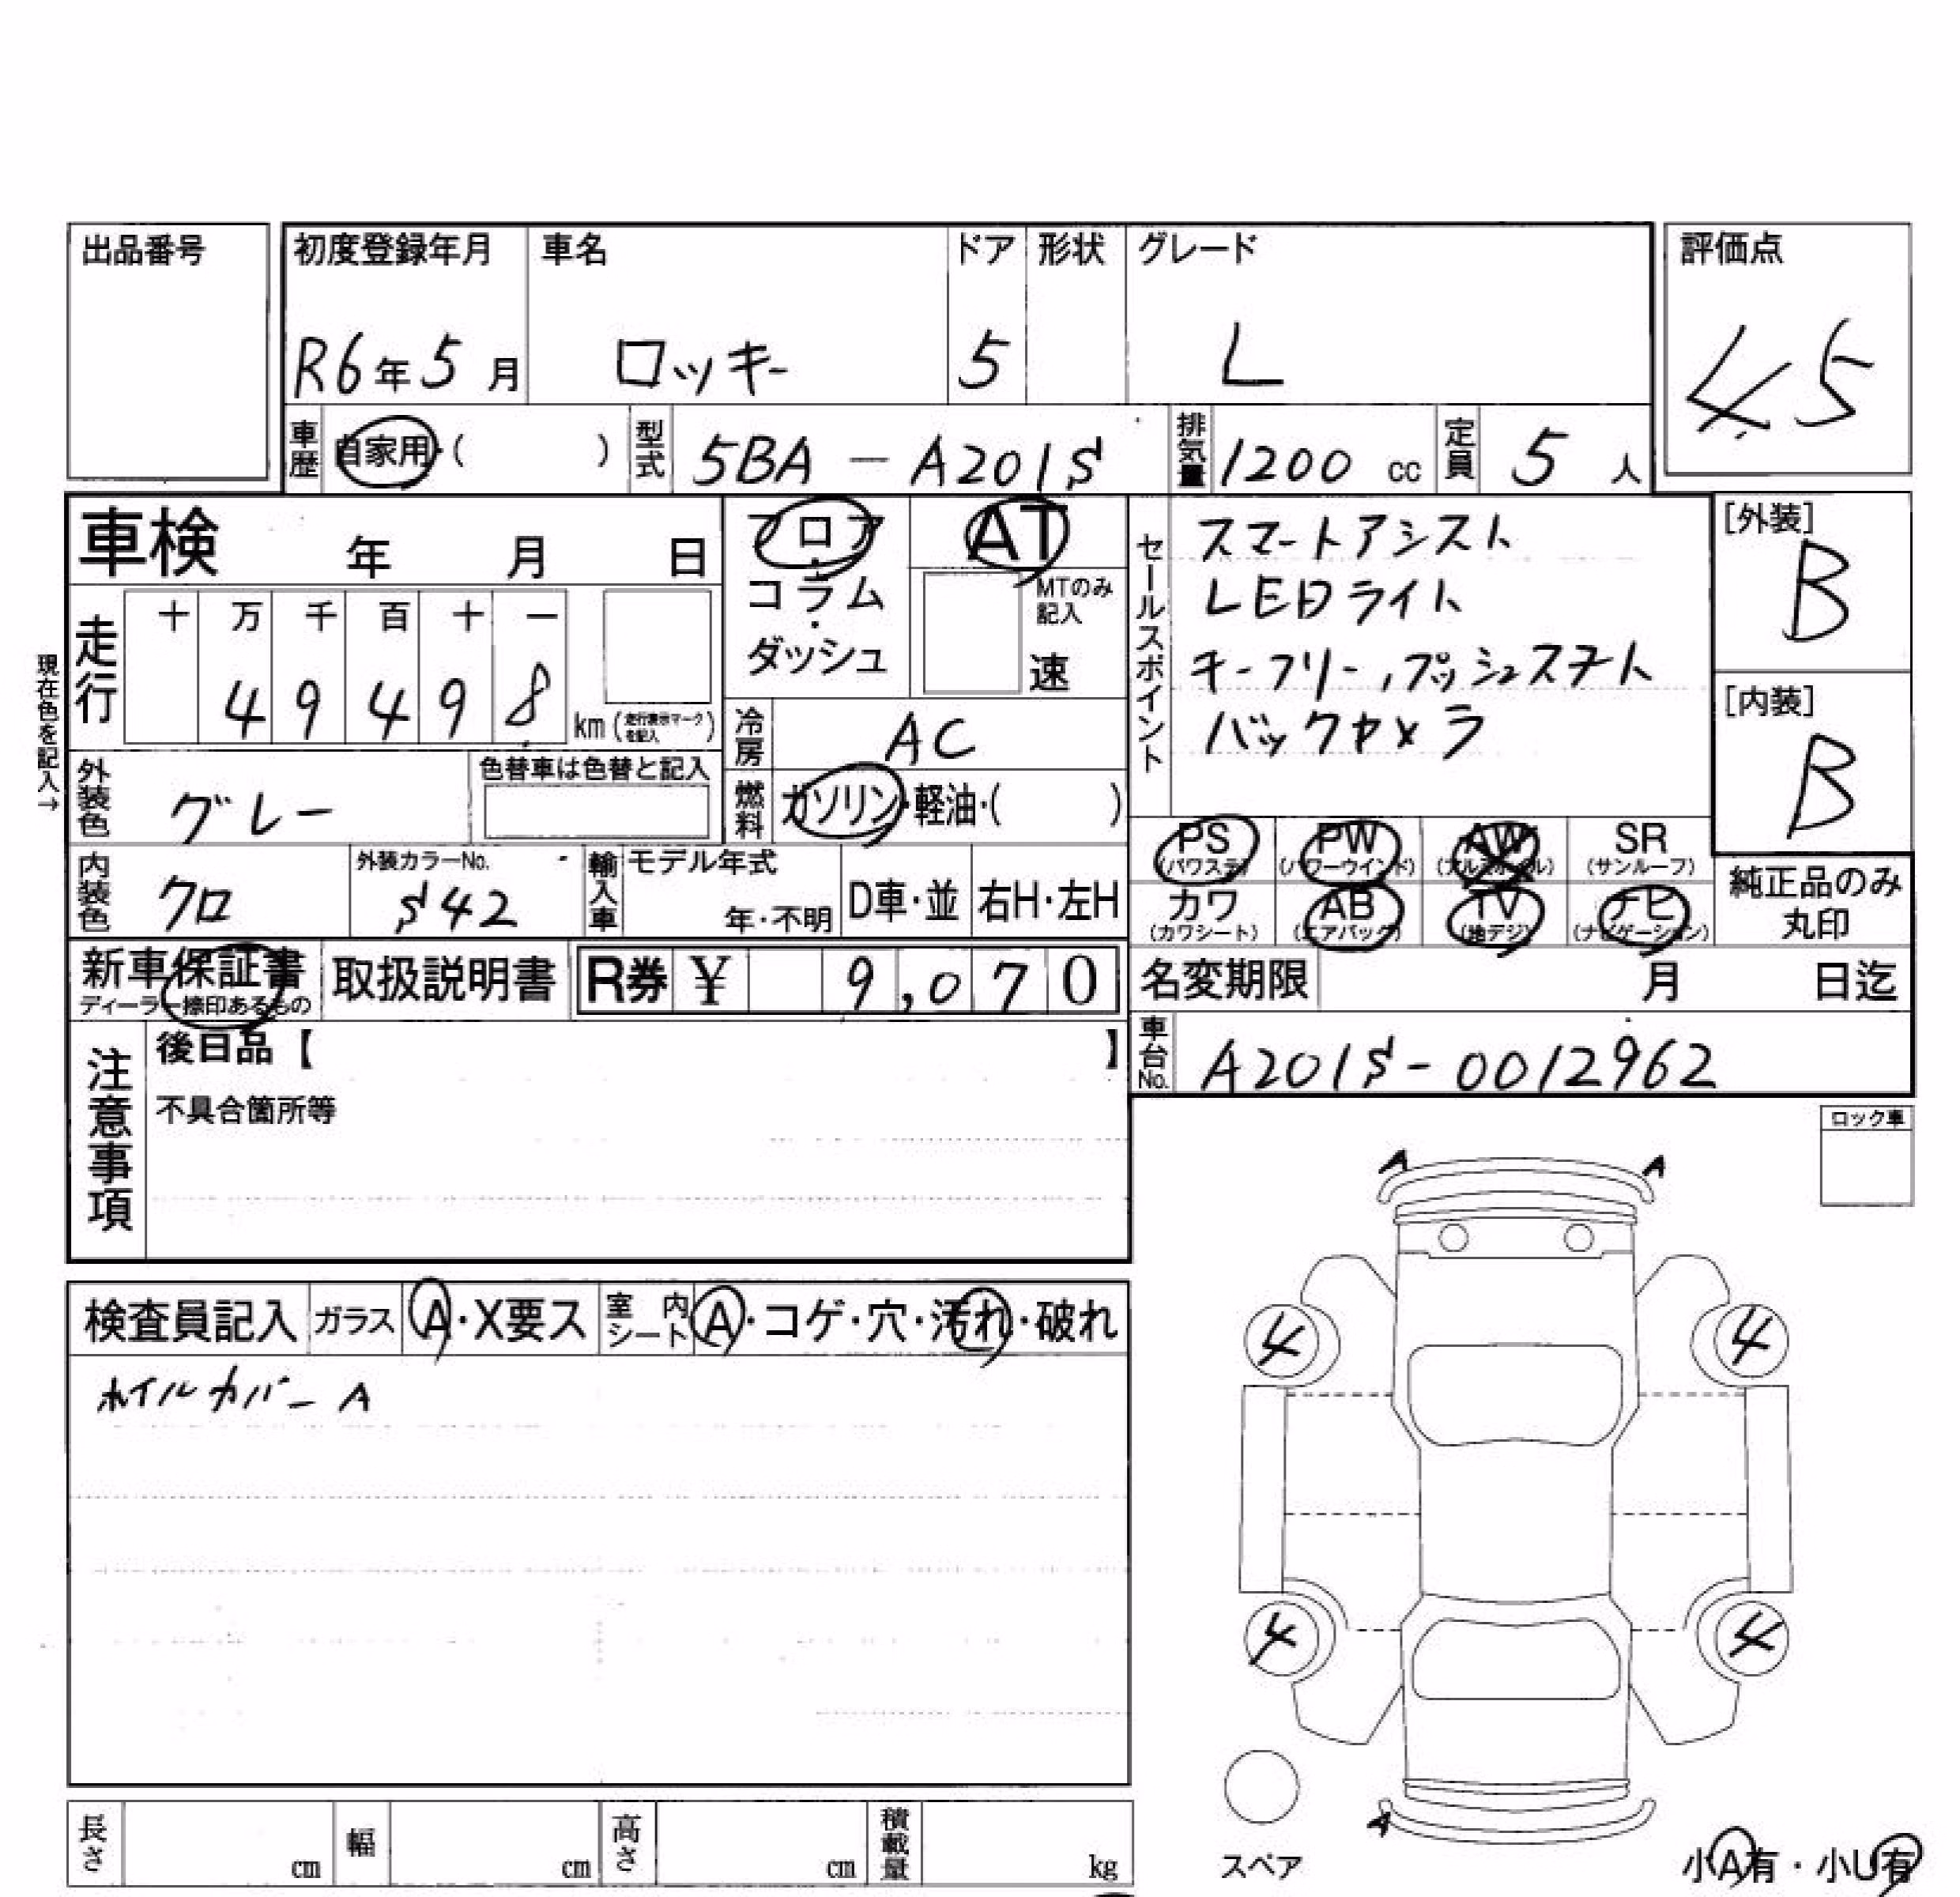 出品番号
初度登録年月 車名 ドア 形状 グレード 評価点
R6年5月 ロッキー 5 L 4.5
車歴 自家用・( ) 型式 5BA - A201S 排気量 1200 cc 定員 5 人
車検 年 月 日
フロア・コラム・ダッシュ
AT
MTのみ記入
速
セールスポイント
スマートアシスト
LEDライト
キーフリー,プッシュスタート
バックカメラ
[外装]
B
[内装]
B
現在色を記入→
走行 十 万 千 百 十 一
4 9 4 9 8 km (走行表示マークを記入)
冷房 AC
燃料 ガソリン・軽油・( )
外装色 グレー 色替車は色替と記入
内装色 クロ 外装カラーNo. S42 輸入車 モデル年式 年・不明 D車・並 右H・左H
PS (パワステ) PW (パワーウインド) AW (アルミホイル) SR (サンルーフ)
カワ (カワシート) AB (エアバック) TV (地デジ) ナビ (ナビゲーション)
純正品のみ丸印
新車保証書 ディーラー捺印あるもの 取扱説明書 R券 ¥ 9,070
名変期限 月 日迄
車台No. A201S-0012962
注意事項
後日品【 】
不具合箇所等
ロック車
A A
検査員記入 ガラス A・X要ス 室内シート A・コゲ・穴・汚れ・破れ
ホイルカバーA
4 4
4 4
A
スペア
小A有・小U有
長さ cm 幅 cm 高さ cm 積載量 kg